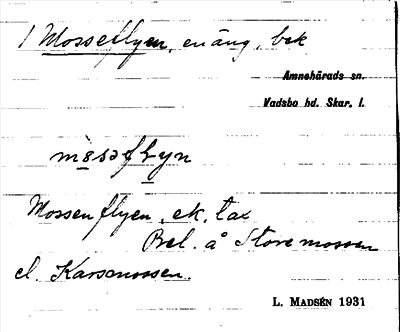 1 Mosseflyen, en äng, bek
Amnehärads sn.
Vadsbo hd. Skar. l.
Mossenflyen, ek. tax
Bel. å Storemossen
el. Karsmossen.
L. MADSÉN 1931